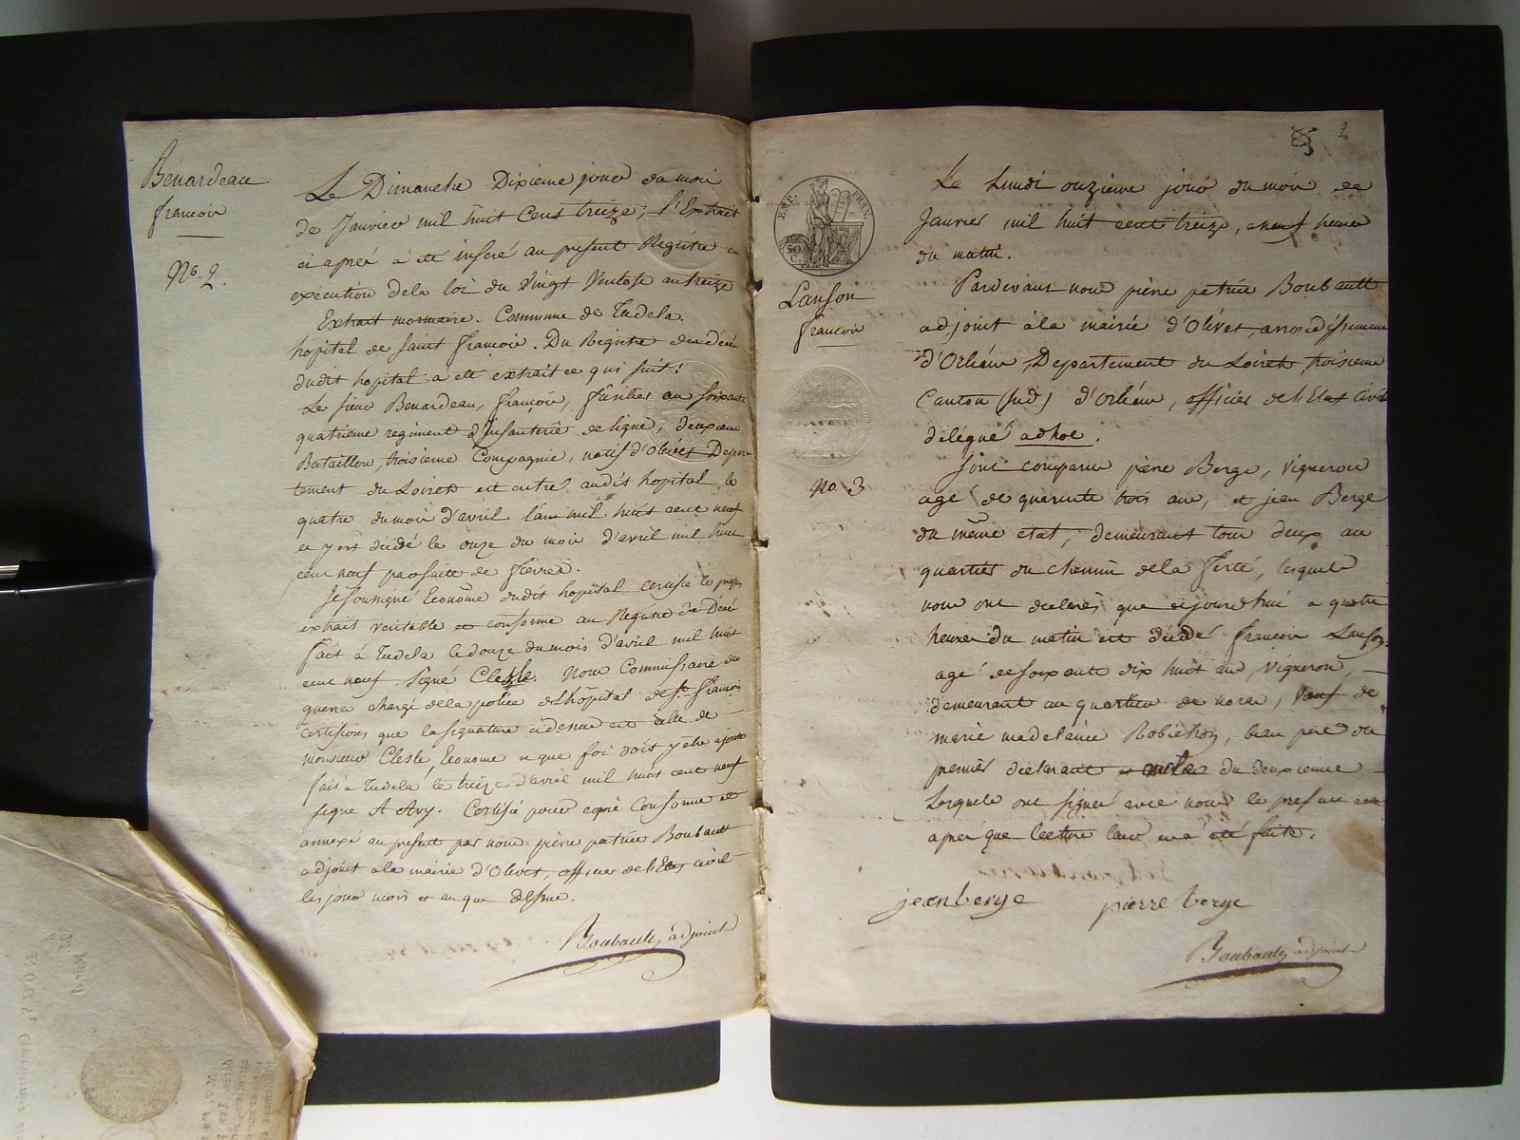 Benardeau
francois
No. 2.
Le Dimanche Dixieme jour du mois
de Janvier mil huit Cent treize, l'Extrait
ci aprés a été inseré au present Régistre en
exécution de la loi du Vingt Ventose an treize
Extrait mortuaire. Commune de Tudela.
hopital de Saint François. Du Régistre des décés
dudit hopital a été extrait ce qui suit:
Le sieur Benardeau, françois, fusilier au soixante
quatrieme regiment d'Infanterie de ligne, deuxieme
Bataillon, troisieme Compagnie, natif d'Olivet Depar-
tement du Loiret est entré audit hopital le
quatre du mois d'avril l'an mil huit cent neuf
et y est décédé le onze du mois d'avril mil huit
cent neuf par suite de fièvre.
Je soussigné Econome dudit hopital certifie le present
extrait veritable et conforme au Registre de Décés
fait à Tudela le douze du mois d'avril mil huit
cent neuf. Signé Cleslle. Nous Commissaire des
guerres chargé de la police de l'hôpital de St. François
certifions que la signature ci dessus est celle de
monsieur Clesle, Econome et que foi doit y être ajoutée
fait à Tudela le treize d'avril mil huit cent neuf
signé A Avy. Certifié pour copie Conforme et
annexé au present par nous pierre patrice Boubault
adjoint a la mairie d'Olivet, officier de l'Etat civil
les jour mois et an que dessus.
Boubault, adjoint
2
REP. FRAN.
50 C.
Lanson
françois
No. 3
Le Lundi onzieme jour du mois de
Janvier mil huit cent treize, a neuf heures
du matin.
Pardevant nous pierre patrice Boubault
adjoint à la mairie d'Olivet, arrondissement
d'Orléans, Departement du Loiret troisieme
Canton (sud) d'Orléans, officier de l'Etat Civil
délégué adhoc.
Sont comparus pierre Berge, Vigneron
agé de quarante trois ans, et jean Berge
du même etat, demeurant tous deux au
quartier du chemin de la Ferté, lesquels
nous ont déclarés que aujourd'hui a quatre
heures du matin est décédé françois Lanson,
agé de soixante dix huit ans, vigneron,
demeurant au quartier de noras, Veuf de
marie madelaine Robichon, beau pere du
premier déclarant et oncle du deuxieme
Lesquels ont signé avec nous le present acte
aprés que lecture leur en a été faite.
jean berge pierre berge
Boubault, adjoint